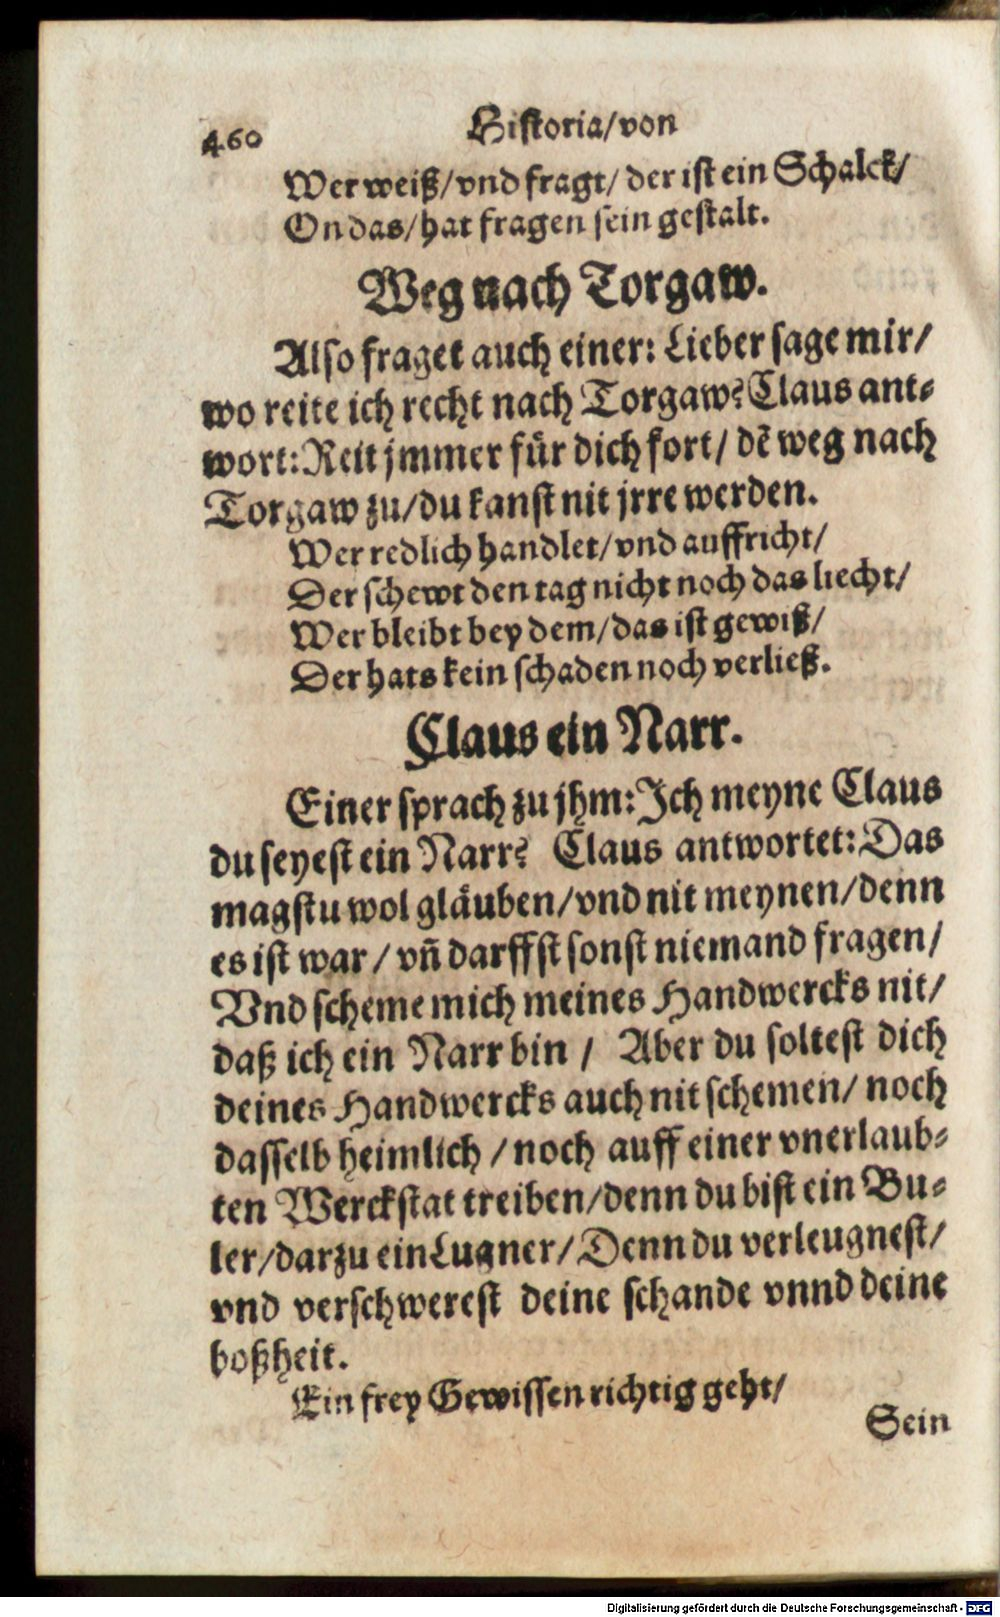 460
Historia/von
Wer weiß/vnd fragt/ der ist ein Schalck/
On das/hat fragen sein gestalt.
Weg nach Torgaw.
Also fraget auch einer: Lieber sage mir/
wo reite ich recht nach Torgaw? Claus ant-
wort: Reit jmmer für dich fort/ dē weg nach
Torgaw zu/du kanst nit jrre werden.
Wer redlich handlet/vnd auffricht/
Der schewt den tag nicht noch das liecht/
Wer bleibt bey dem/das ist gewiß/
Der hats kein schaden noch verließ.
Claus ein Narr.
Einer sprach zu jhm: Ich meyne Claus
du seyest ein Narr? Claus antwortet: Das
magstu wol gläuben/vnd nit meynen/denn
es ist war / vñ darffst sonst niemand fragen/
Vnd scheme mich meines Handwercks nit/
daß ich ein Narr bin / Aber du soltest dich
deines Handwercks auch nit schemen/ noch
dasselb heimlich / noch auff einer vnerlaub-
ten Werckstat treiben/denn du bist ein Bu-
ler/darzu ein Lugner/ Denn du verleugnest/
vnd verschwerest deine schande vnnd deine
boßheit.
Ein frey Gewissen richtig geht/
Sein
Digitalisierung gefördert durch die Deutsche Forschungsgemeinschaft - DFG